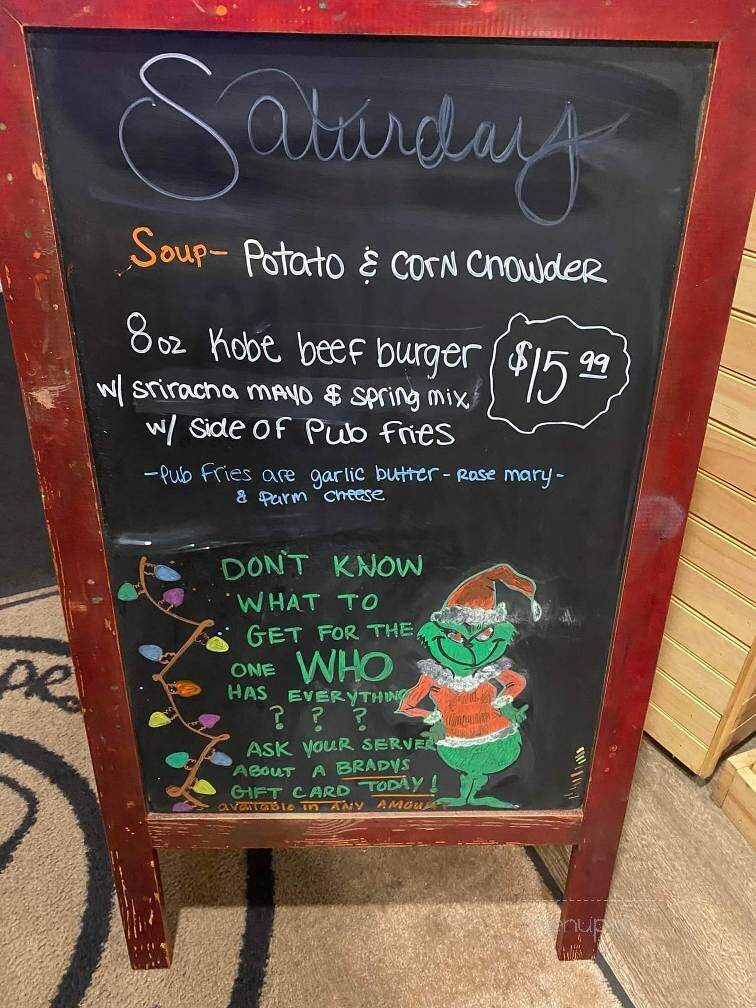 Saturday
Soup- Potato & Corn Chowder
8oz Kobe beef burger
$15 99
w/ sriracha mayo & spring mix,
w/ side of Pub fries
-Pub fries are garlic butter - Rose mary -
& Parm cheese
DON'T KNOW
WHAT TO
GET FOR THE
ONE WHO
HAS EVERYTHING
? ? ?
ASK YOUR SERVER
ABOUT A BRADYS
GIFT CARD TODAY!
available in ANY AMOUNT